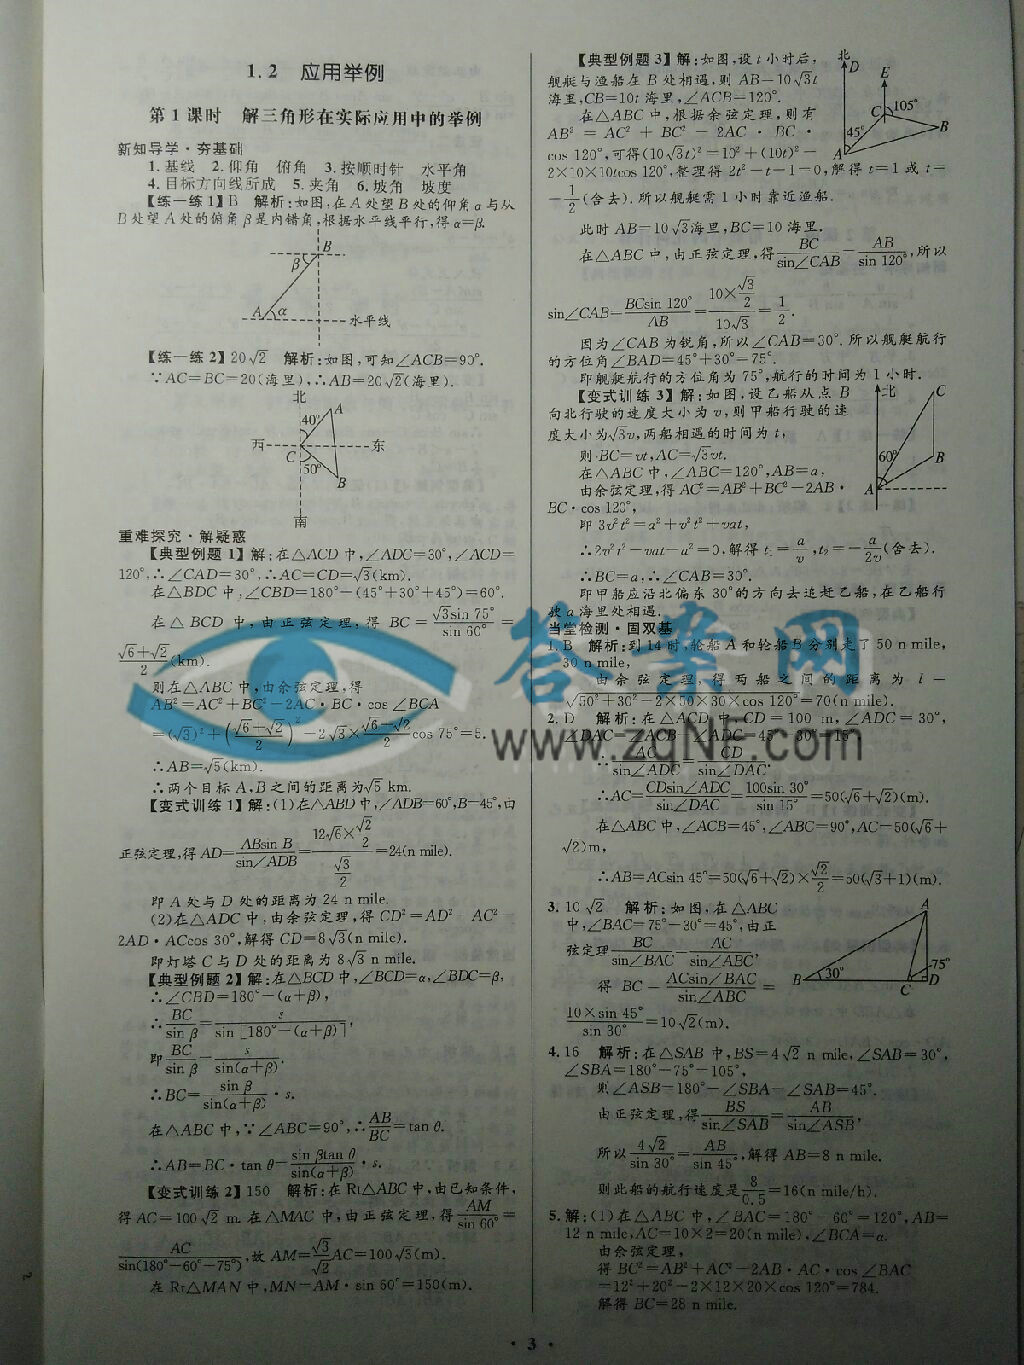 1.2 应用举例
第1课时 解三角形在实际应用中的举例
新知导学·夯基础
1. 基线 2. 仰角 俯角 3. 按顺时针 水平角
4. 目标方向线所成 5. 夹角 6. 坡角 坡度
【练一练1】B 解析:如图,在A处望B处的仰角α与从
B处望A处的俯角β是内错角,根据水平线平行,得α=β.
B
β
A α 水平线
【练一练2】20√2 解析:如图,可知∠ACB=90°.
∵AC=BC=20(海里),∴AB=20√2(海里).
北
40° A
西 东
C 50°
B
南
重难探究·解疑惑
【典型例题1】解:在△ACD中,∠ADC=30°,∠ACD=
120°,∴∠CAD=30°,∴AC=CD=√3(km).
在△BDC中,∠CBD=180°-(45°+30°+45°)=60°.
在△BCD中,由正弦定理,得BC=√3sin 75°/sin 60°=
(√6+√2)/2(km).
则在△ABC中,由余弦定理,得
AB²=AC²+BC²-2AC·BC·cos∠BCA
=(√3)²+((√6+√2)/2)²-2√3×(√6+√2)/2cos 75°=5.
∴AB=√5(km).
∴两个目标A,B之间的距离为√5 km.
【变式训练1】解:(1)在△ABD中,∠ADB=60°,B=45°,由
正弦定理,得AD=ABsin B/sin∠ADB=(12√6×√2/2)/(√3/2)=24(n mile).
即A处与D处的距离为24 n mile.
(2)在△ADC中,由余弦定理,得CD²=AD²+AC²-
2AD·ACcos 30°,解得CD=8√3(n mile).
即灯塔C与D处的距离为8√3 n mile.
【典型例题2】解:在△BCD中,∠BCD=α,∠BDC=β,
∴∠CBD=180°-(α+β),
∴BC/sin β=s/sin[180°-(α+β)],
即BC/sin β=s/sin(α+β).
∴BC=sin β/sin(α+β)·s.
在△ABC中,∵∠ABC=90°,∴AB/BC=tan θ.
∴AB=BC·tan θ=sin βtan θ/sin(α+β)·s.
【变式训练2】150 解析:在Rt△ABC中,由已知条件,
得AC=100√2 m.在△MAC中,由正弦定理,得AM/sin 60°=
AC/sin(180°-60°-75°),故AM=√3/√2AC=100√3(m).
在Rt△MAN中,MN=AM·sin 60°=150(m).
【典型例题3】解:如图,设t小时后,
舰艇与渔船在B处相遇,则AB=10√3t
海里,CB=10t海里,∠ACB=120°.
在△ABC中,根据余弦定理,则有
AB²=AC²+BC²-2AC·BC·
cos 120°,可得(10√3t)²=10²+(10t)²-
2×10×10tcos 120°,整理得2t²-t-1=0,解得t=1或t=
-1/2(舍去).所以舰艇需1小时靠近渔船.
此时AB=10√3海里,BC=10海里.
在△ABC中,由正弦定理,得BC/sin∠CAB=AB/sin 120°,所以
sin∠CAB=BCsin 120°/AB=(10×√3/2)/10√3=1/2.
因为∠CAB为锐角,所以∠CAB=30°.所以舰艇航行
的方位角∠BAD=45°+30°=75°.
即舰艇航行的方位角为75°,航行的时间为1小时.
北
D
E
C 105°
B
45°
A
【变式训练3】解:如图,设乙船从点B
向北行驶的速度大小为v,则甲船行驶的速
度大小为√3v,两船相遇的时间为t,
则BC=vt,AC=√3vt.
在△ABC中,∠ABC=120°,AB=a,
由余弦定理,得AC²=AB²+BC²-2AB·
BC·cos 120°,
即3v²t²=a²+v²t²+vat,
∴2v²t²-vat-a²=0,解得t₁=a/v,t₂=-a/2v(舍去).
∴BC=a,∴∠CAB=30°.
即甲船应沿北偏东30°的方向去追赶乙船,在乙船行
驶a海里处相遇.
北 C
60° B
A
当堂检测·固双基
1. B 解析:到14时,轮船A和轮船B分别走了50 n mile,
30 n mile,
由余弦定理,得两船之间的距离为l=
√(50²+30²-2×50×30×cos 120°)=70(n mile).
2. D 解析:在△ACD中,CD=100 m,∠ADC=30°,
∠DAC=∠ACB-∠ADC=45°-30°=15°.
AC/sin∠ADC=CD/sin∠DAC,
∴AC=CDsin∠ADC/sin∠DAC=100sin 30°/sin 15°=50(√6+√2)(m).
在△ABC中,∠ACB=45°,∠ABC=90°,AC=50(√6+
√2)m,
∴AB=ACsin 45°=50(√6+√2)×√2/2=50(√3+1)(m).
3. 10√2 解析:如图,在△ABC
中,∠BAC=75°-30°=45°,由正
弦定理BC/sin∠BAC=AC/sin∠ABC,
得BC=ACsin∠BAC/sin∠ABC=
10×sin 45°/sin 30°=10√2(m).
A
B 30° C D 75°
4. 16 解析:在△SAB中,BS=4√2 n mile,∠SAB=30°,
∠SBA=180°-75°=105°,
则∠ASB=180°-∠SBA-∠SAB=45°.
由正弦定理,得BS/sin∠SAB=AB/sin∠ASB,
所以4√2/sin 30°=AB/sin 45°,解得AB=8 n mile.
则此船的航行速度是8/0.5=16(n mile/h).
5. 解:(1)在△ABC中,∠BAC=180°-60°=120°,AB=
12 n mile,AC=10×2=20(n mile),∠BCA=α.
由余弦定理,
得BC²=AB²+AC²-2AB·AC·cos∠BAC
=12²+20²-2×12×20×cos 120°=784.
解得BC=28 n mile.
· 3 ·
答案网
www.zqNF.com